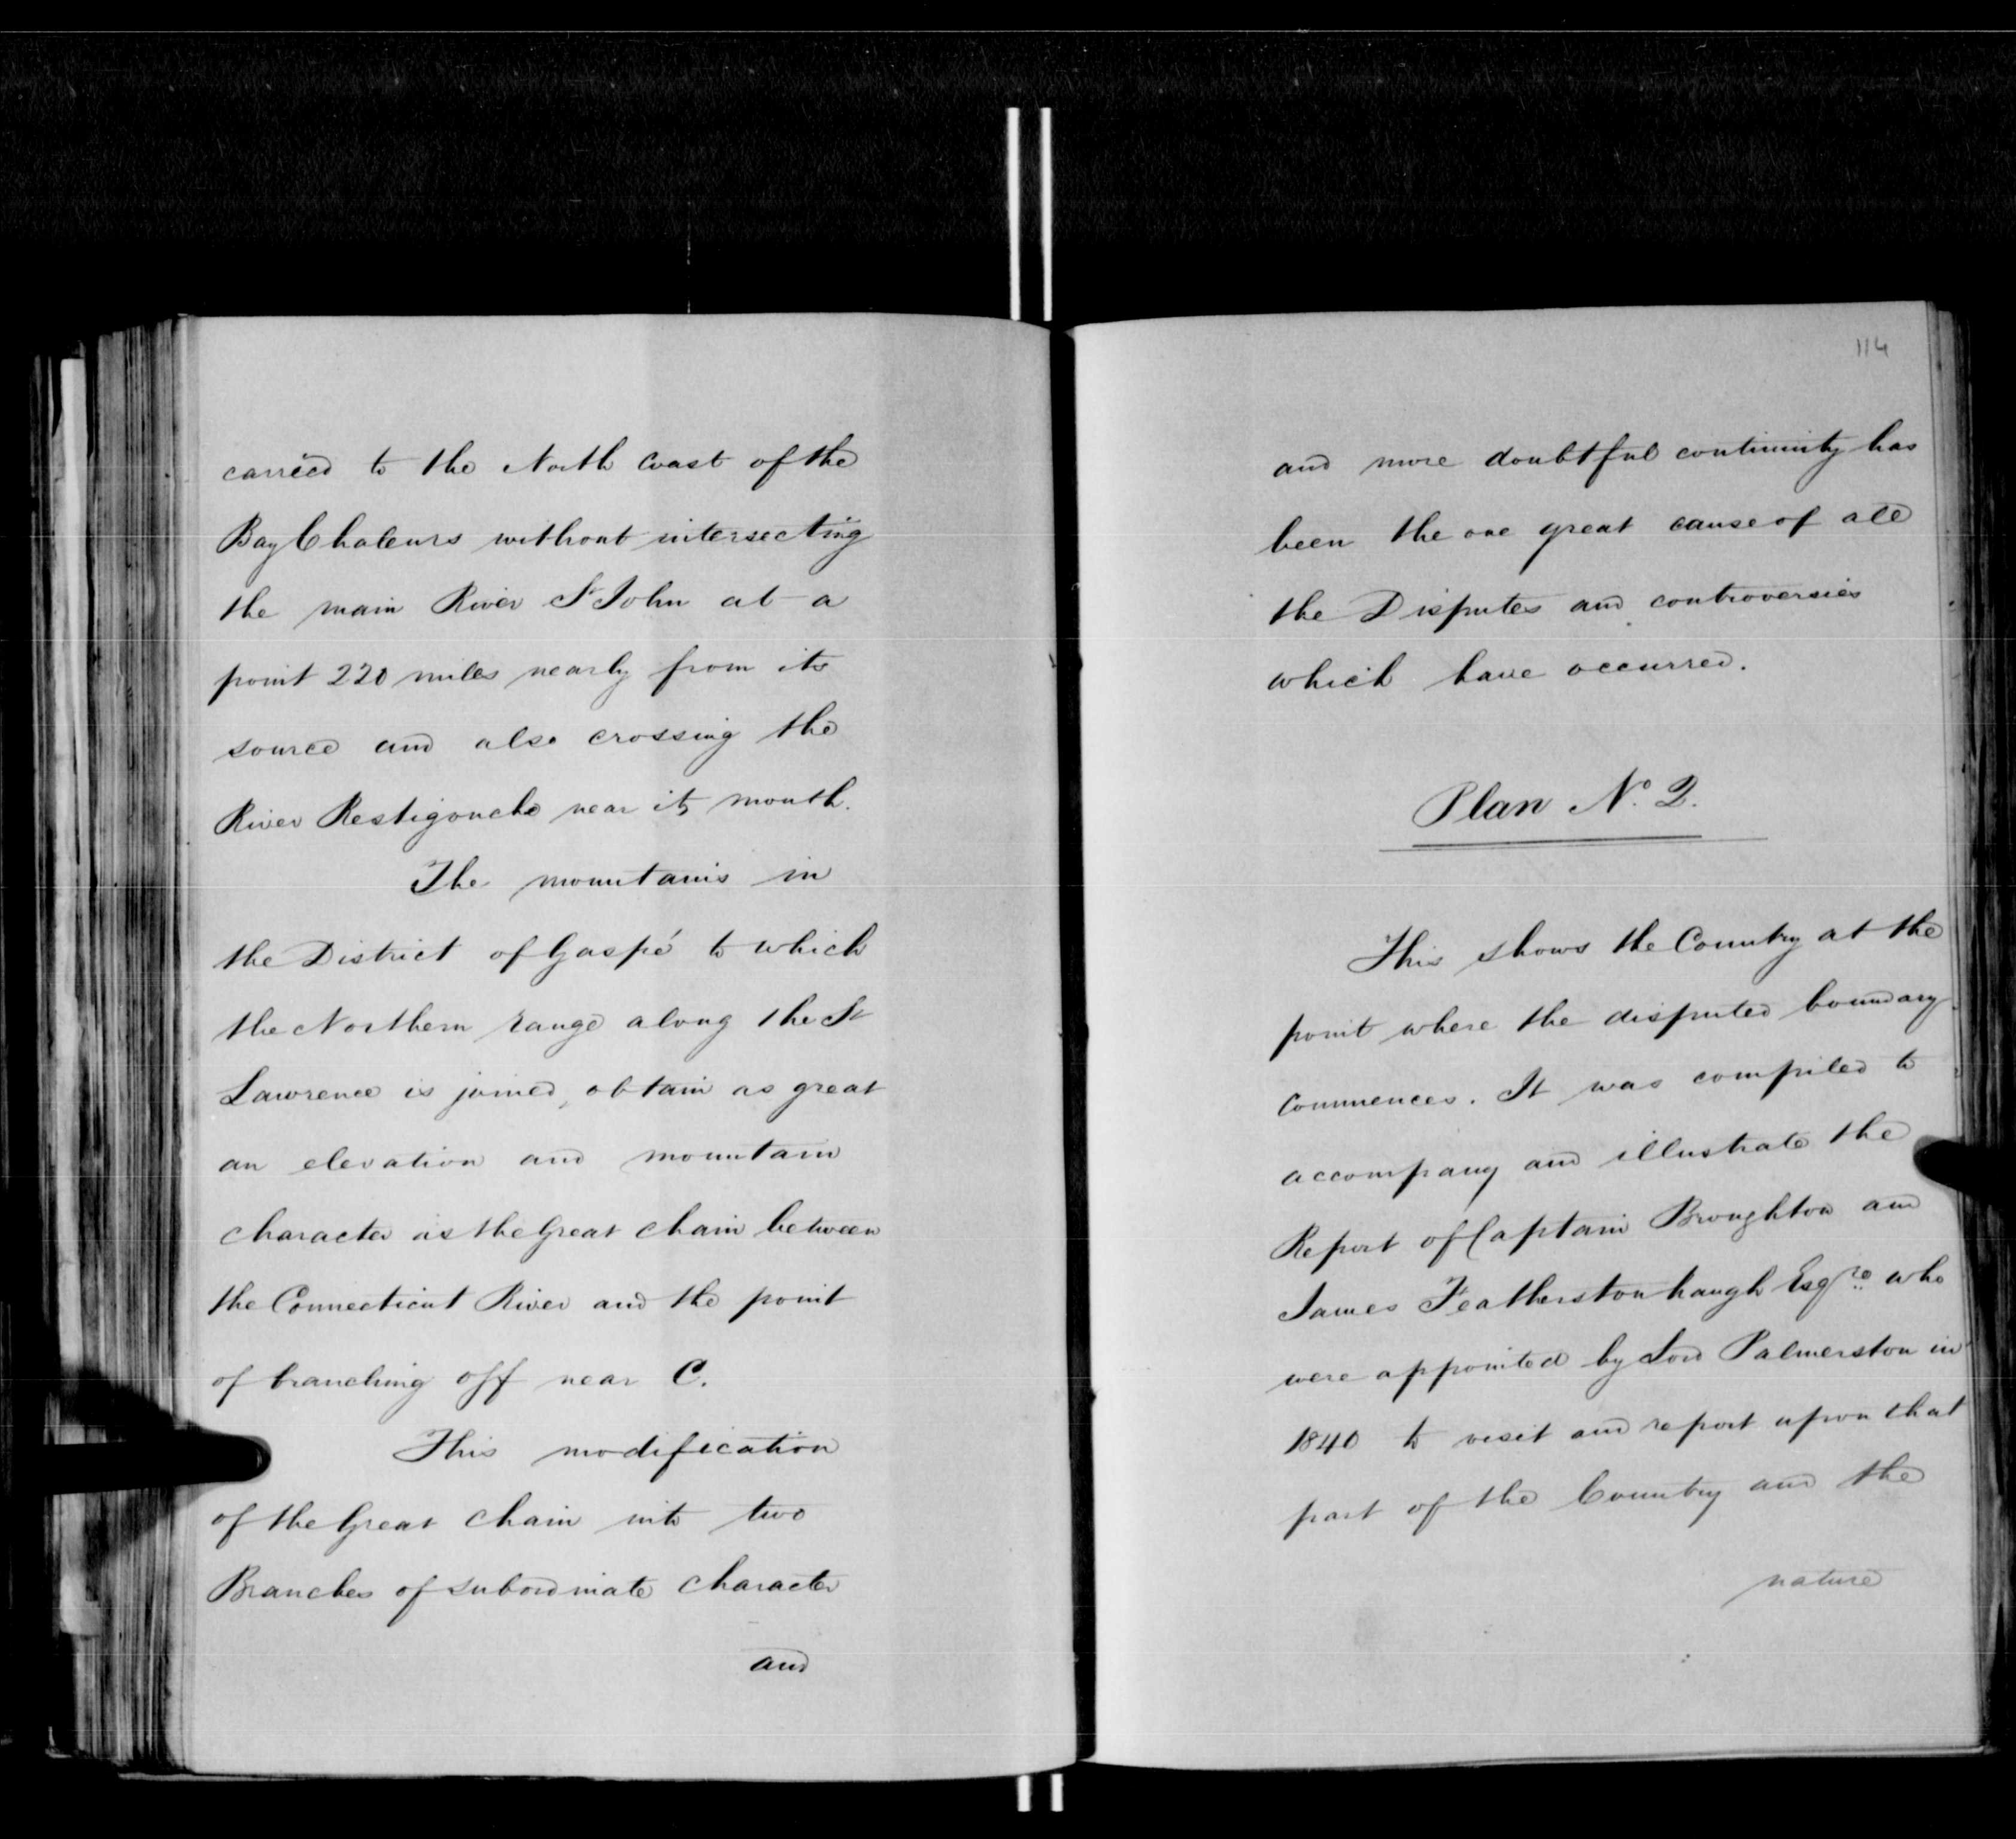 carried to the North Coast of the
Bay Chaleurs without intersecting
the main River St John at a
point 220 miles nearly from its
source and also crossing the
River Restigouche near its mouth.
The mountains in
the District of Gaspé to which
the Northern range along the St
Lawrence is joined, obtain as great
an elevation and mountain
character as the Great Chain between
the Connecticut River and the point
of branching off near C.
This modification
of the Great Chain into two
Branches of subordinate character
and
114
and more doubtful continuity has
been the one great cause of all
the Disputes and controversies
which have occurred.
Plan No. 2.
This shows the Country at the
point where the disputed boundary
commences. It was compiled to
accompany and illustrate the
Report of Captain Broughton and
James Featherstonhaugh Esqre. who
were appointed by Lord Palmerston in
1840 to visit and report upon that
part of the Country and the
nature